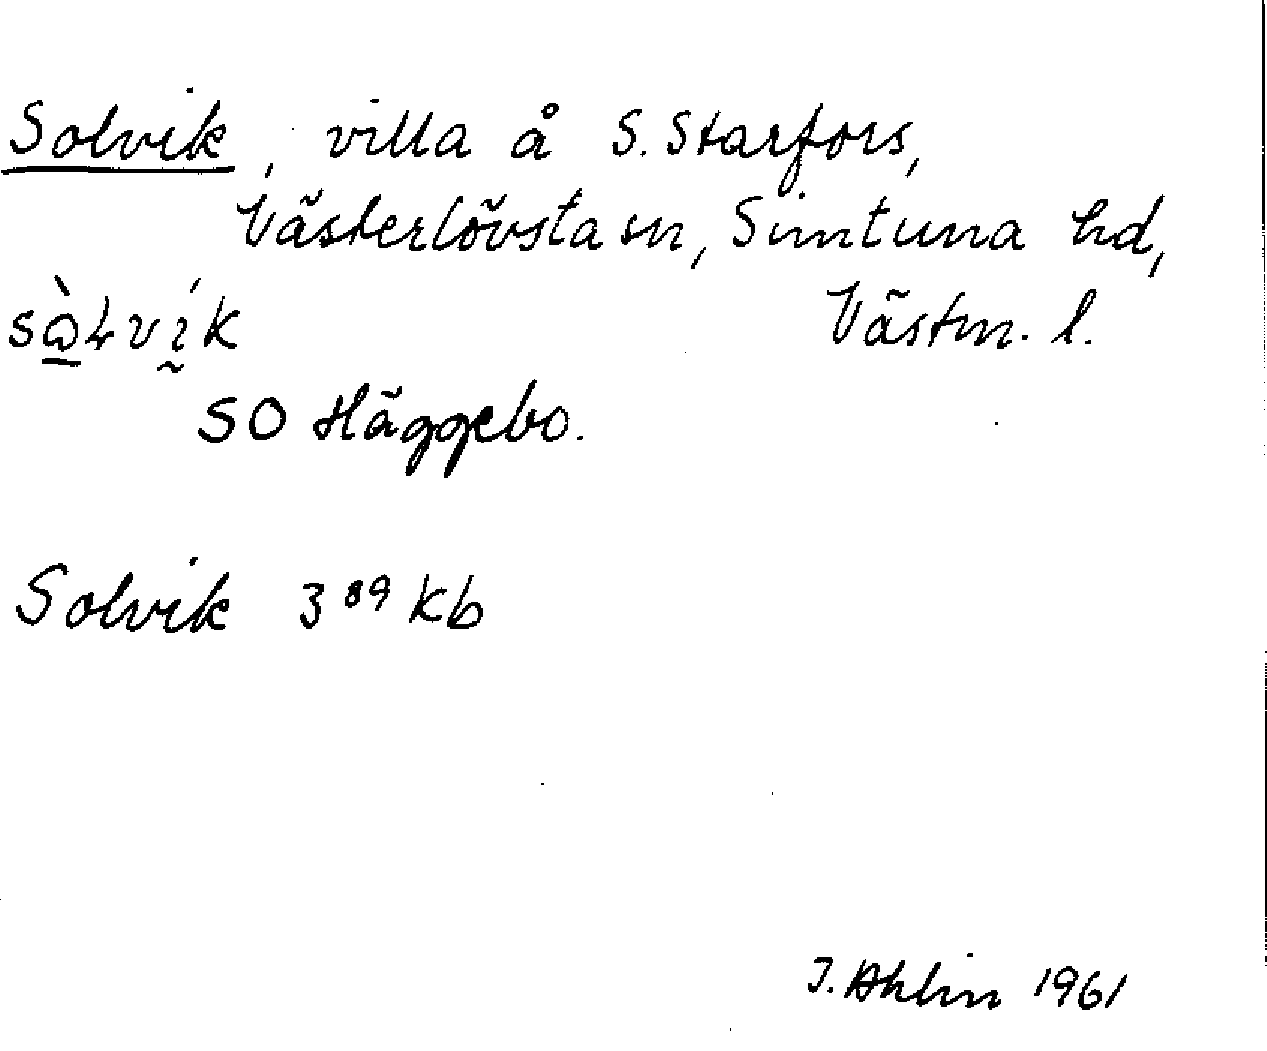 Solvik, villa å S. Starfors,
Västerlövsta sn, Simtuna hd,
Västm. l.
sò̱Lvḭ́k
SO Häggebo.
Solvik 3⁸⁹ Kb
J. Ahlin 1961